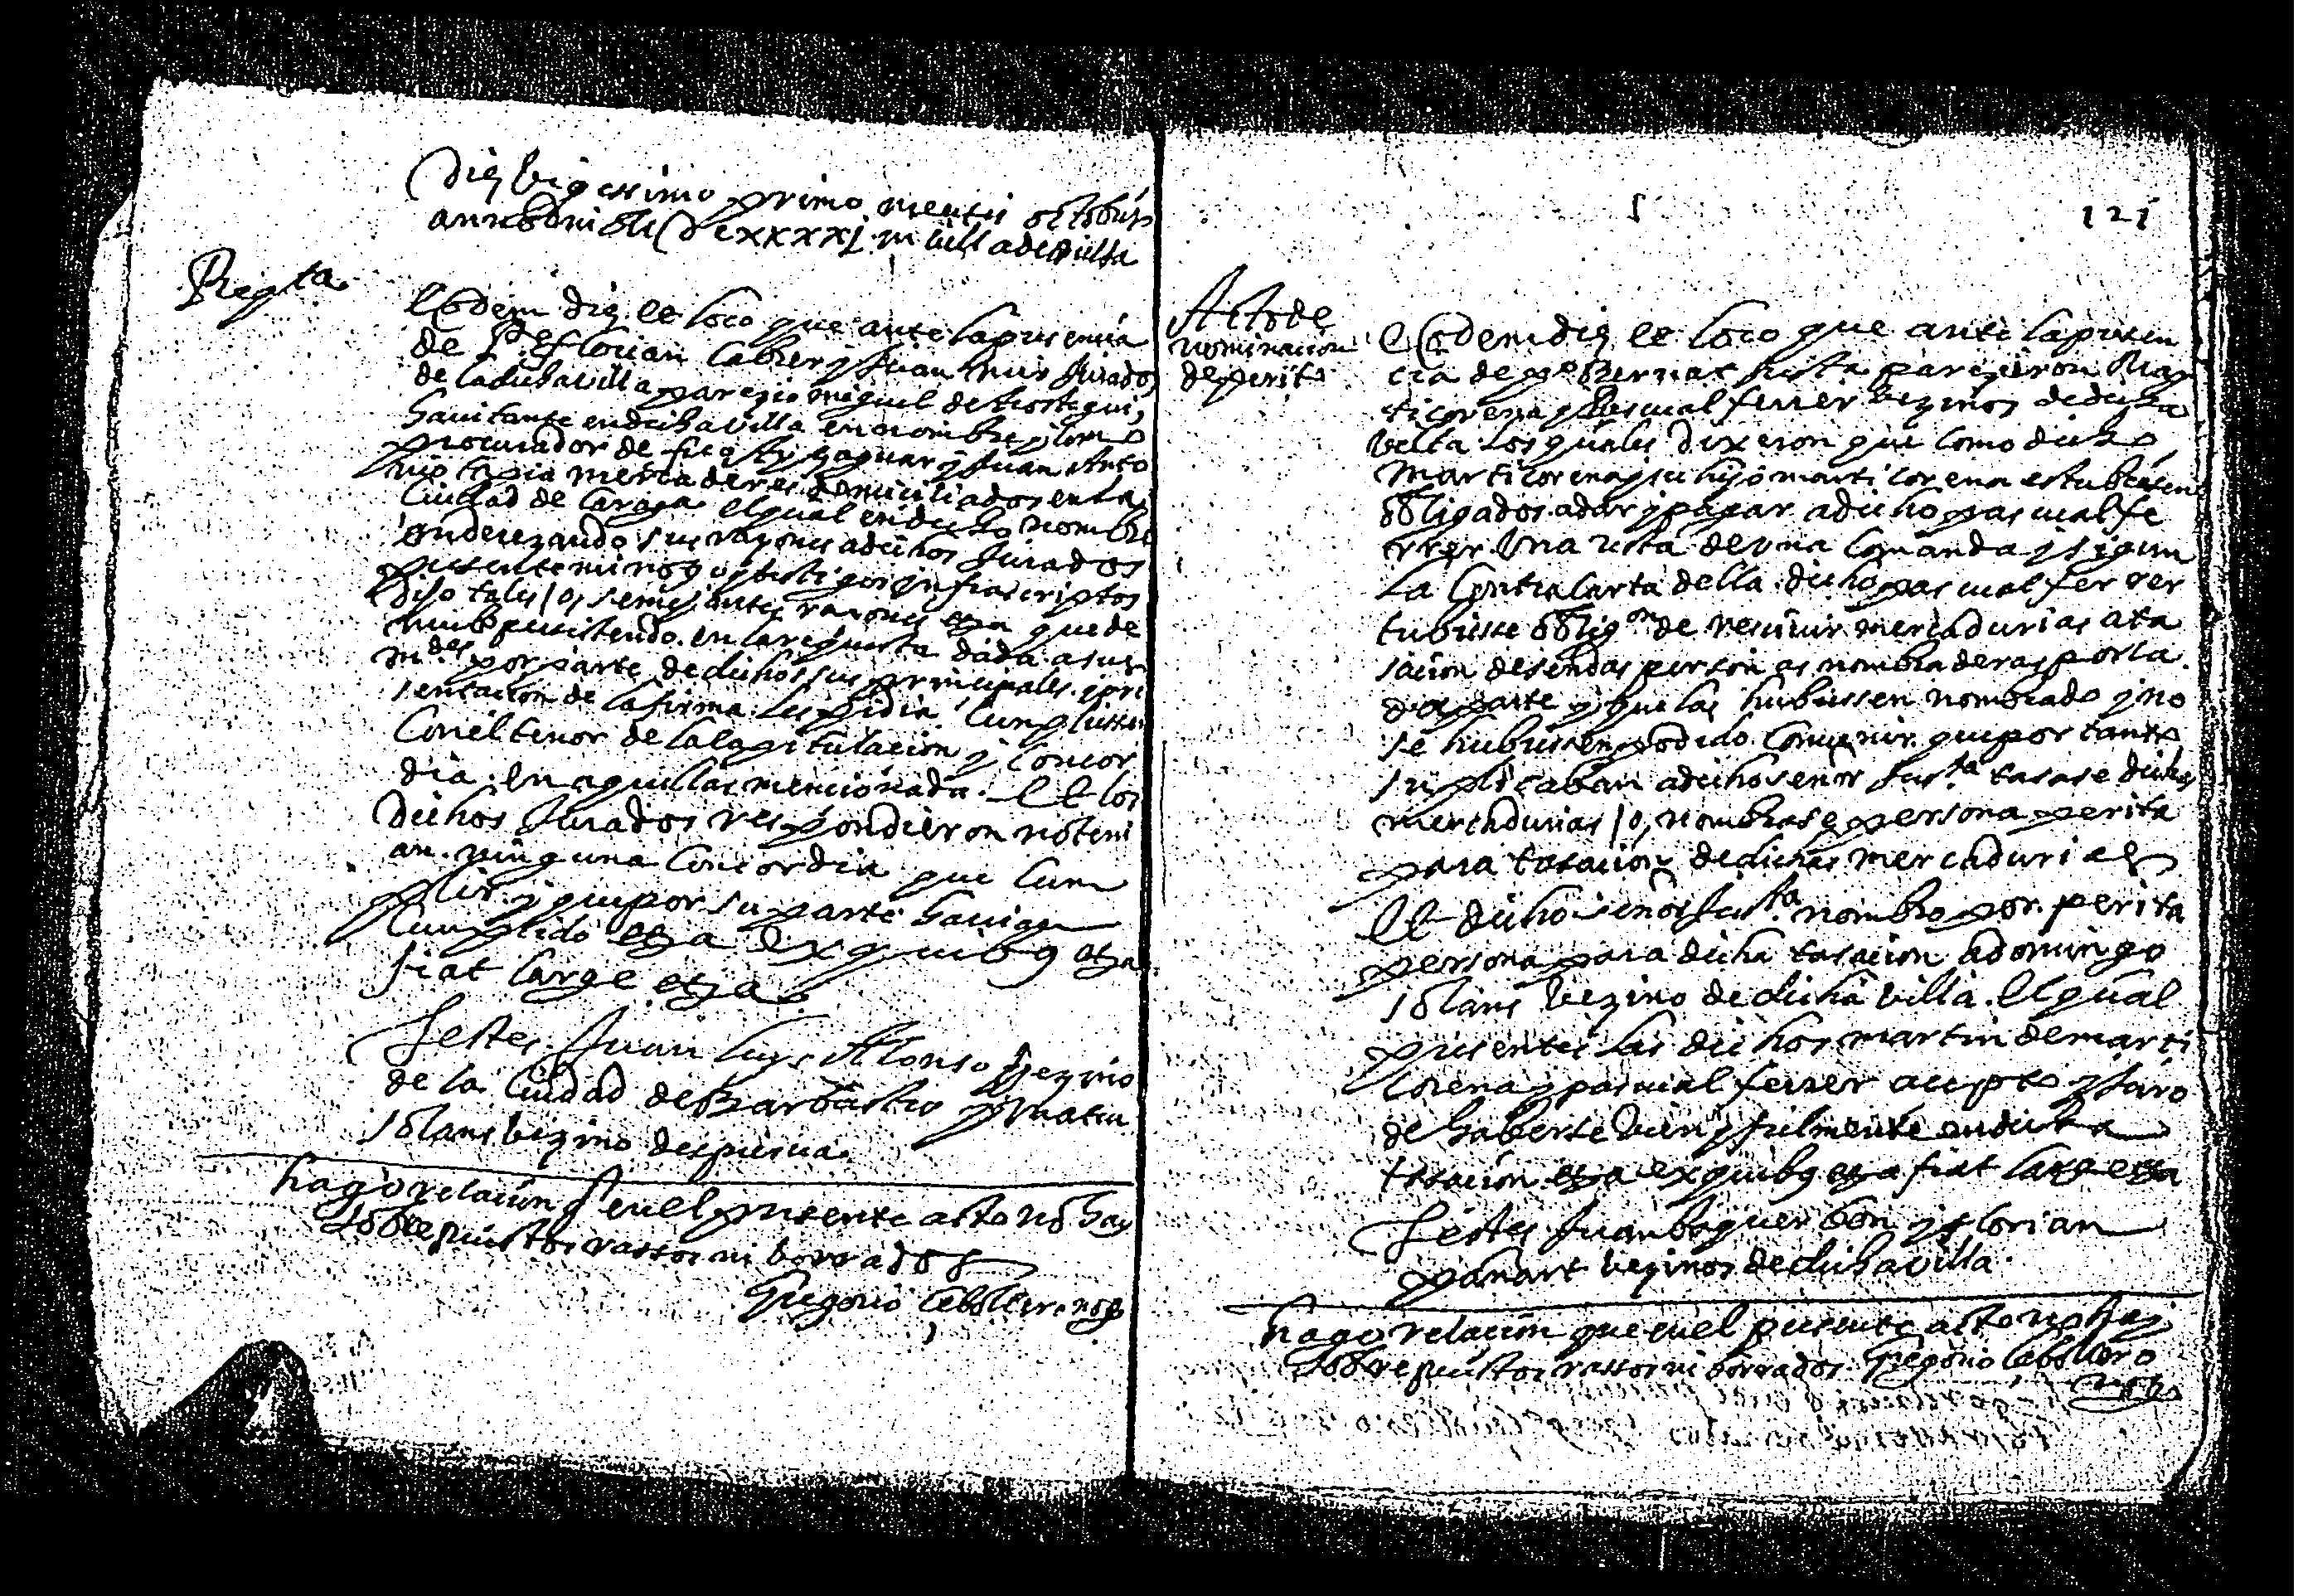 Die bigessimo primo mensis octobris
anno dni MDCxxxxj in villa de bielsa
Regta
Eodem die et loco que ante la presencia
de Po Florian Cabrer y Juan Mur Jurados
de la dicha villa parezio miguel de
havitante en dicha villa en nombre y como
procurador de y Juan Anto
nio tapia mercaderes domiciliados en la
Ciudad de Caragoza el qual en dicho nombre
enderezando sus razones a dichos Jurados
presente mi noto y testigos infrascriptos
dijo tales /o, semejantes razones etza que de
nuebo persistendo en la requesta dada a sus
mdes por parte de dichos sus principales y pre
sentacion de la firma les pidia Cumpliessen
Con el tenor de la Capitulacion y Concor
dia en aquellas mencionada. Et los
dichos Jurados respondieron no teni
an ninguna Concordia que Cum
plir y que por su parte havian
Cumplido etza Ex quibus etza
fiat large etza
Testes Juan Luys Alonso vezino
de la Ciudad de Barbastro y Matin
Solans vezino despierua.
hago relacion q en el presente acto no hay
sobrepuestos rassos ni borrados
Gregorio Caballero noto
121
Acto de
nominacion
de perito
Eodem die et loco que ante la presen
cia de po Bernat Justa parezieron Mar
ticorena y Pascual ferrer vezinos de dicha
villa los quales dixeron que como dicho
Marticorena y su hijo marticorena estubiesen
obligados a dar y pagar a dicho pascual fe
rrer Una resta de una Comanda y sigun
la Contracarta della dicho pascual ferrer
tubiesse obligon de recivir mercadurias a ta
sacion de sendas personas nombraderas por ca
da parte y que las hubiessen nombrado y no
se hubiessen podido Convenir que por tanto
suplicaban a dicho señor Justa tasase dichas
mercadurias /o, nombrase persona perita
para tasacion de dichas mercadurias
Et dicho señor Justa nombro por perita
persona para dicha tasacion a domingo
solans vezino de dicha villa. El qual
presentes los dichos martin de marti
corena y pascual ferrer acepto y juro
de haberse bien y fielmente en dicha
tasacion etza ex quibus etza fiat large etza
Testes Juan baguer bon y florian
panart vezinos de dicha villa
hago relacion que en el presente acto no hay
sobrepuestos rassos ni borrados. Gregorio Caballero
noto